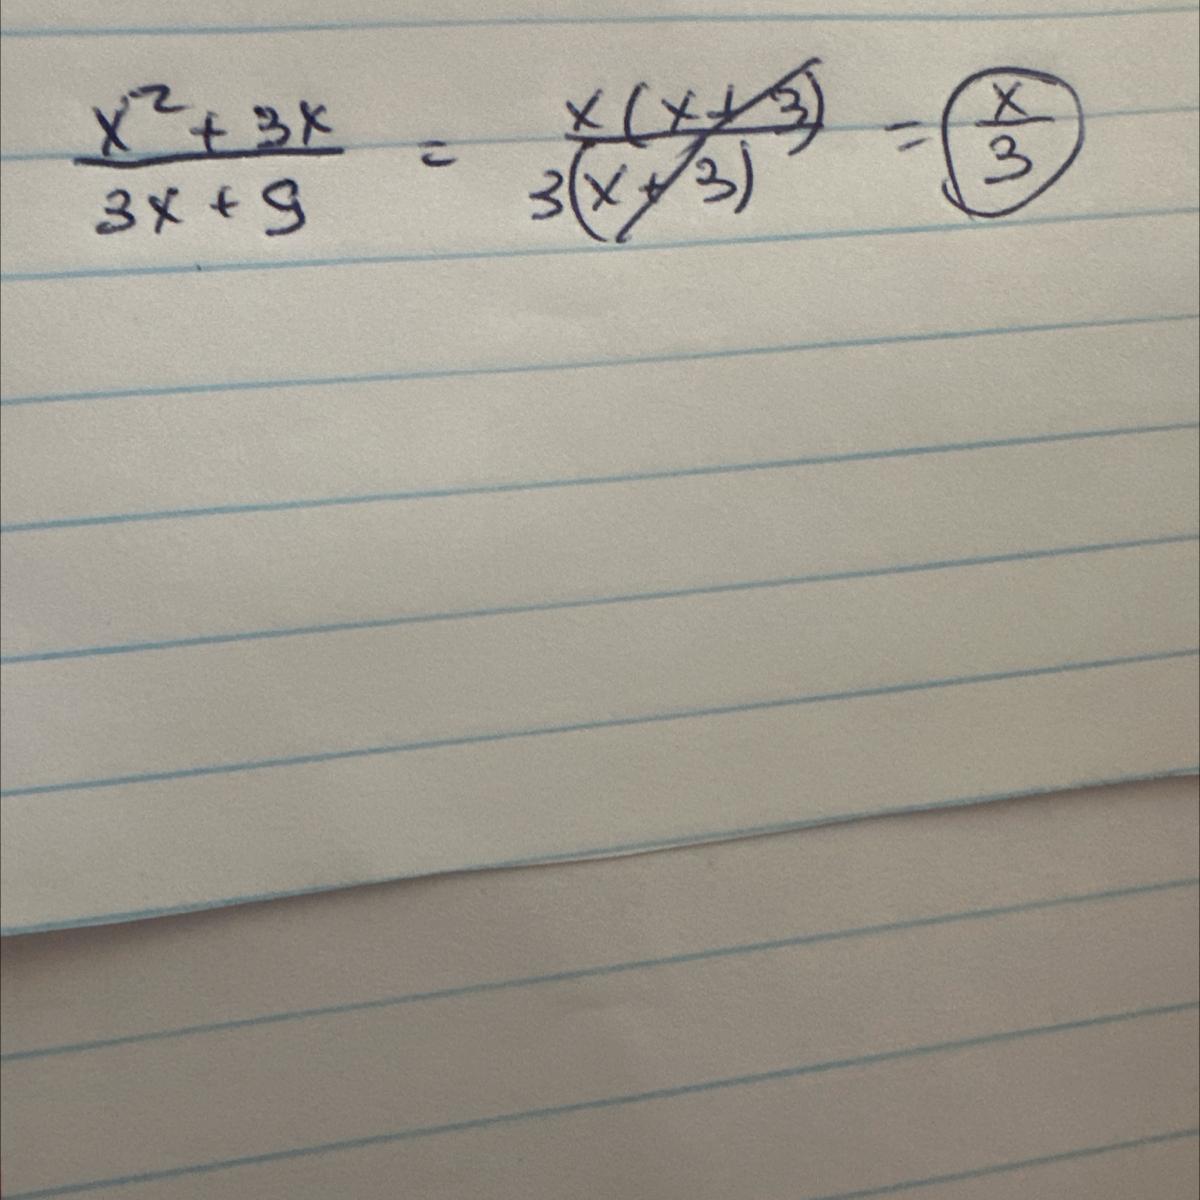 x² + 3x / 3x + 9 = x(x+3) / 3(x+3) = x / 3